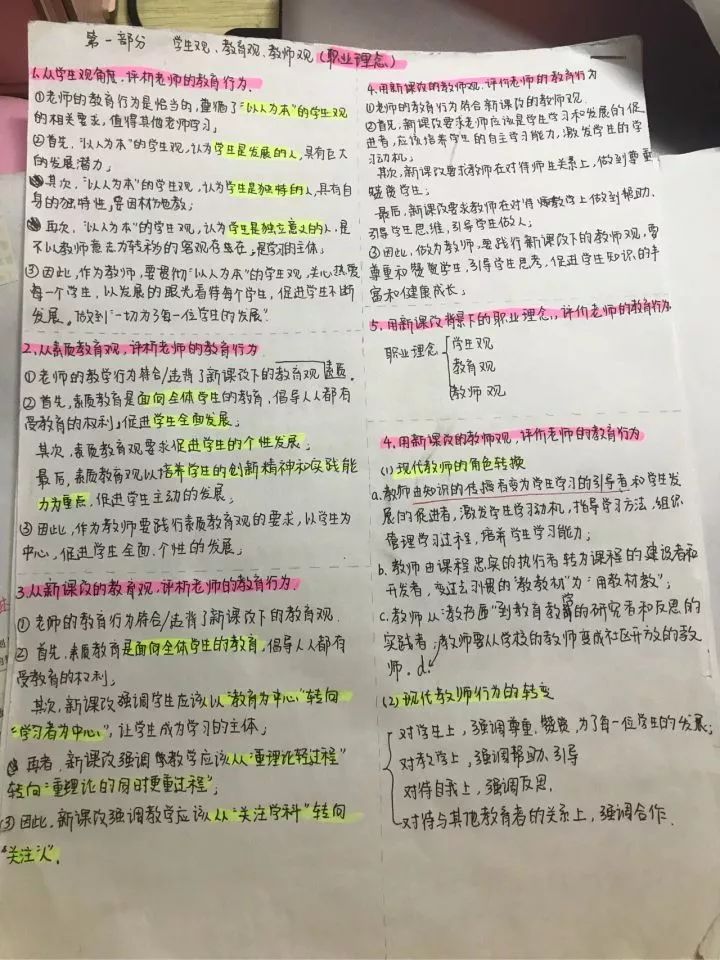 第一部分 学生观、教育观、教师观（职业理念）
1.从学生观角度,评析老师的教育行为.
①老师的教育行为是恰当的,遵循了“以人为本”的学生观
的相关要求,值得其他老师学习;
②首先,“以人为本”的学生观,认为学生是发展的人,具有巨大
的发展潜力;
其次,“以人为本”的学生观,认为学生是独特的人,具有自
身的独特性,要因材施教;
再次,“以人为本”的学生观,认为学生是独立意义的人,是
不以教师意志为转移的客观存在,是学习的主体;
③因此,作为教师,要贯彻“以人为本”的学生观,关心热爱
每一个学生,以发展的眼光看待每个学生,促进学生不断
发展。做到“一切为了每一位学生的发展”
2.从素质教育观,评析老师的教育行为
①老师的教学行为符合/违背了新课改下的教育观
②首先,素质教育是面向全体学生的教育,倡导人人都有
受教育的权利,促进学生全面发展;
其次,素质教育观要求促进学生的个性发展;
最后,素质教育观以培养学生的创新精神和实践能
力为重点,促进学生主动的发展;
③因此,作为教师要践行素质教育观的要求,以学生为
中心,促进学生全面、个性的发展;
3.从新课改的教育观,评析老师的教育行为
①老师的教育行为符合/违背了新课改下的教育观.
②首先,素质教育是面向全体学生的教育,倡导人人都有
受教育的权利;
其次,新课改强调学生应该以“教育为中心”转向
“学习者为中心”,让学生成为学习的主体;
再者,新课改强调教学应该从“重理论轻过程”
转向“重理论的同时更重过程”;
③因此,新课改强调教学应该从“关注学科”转向
“关注人”.
4.用新课改的教师观,评价老师的教育行为
①老师的教育行为符合新课改的教师观.
②首先,新课改要求老师应该是学生学习和发展的促
进者,应该培养学生的自主学习能力,激发学生的学
习动机;
其次,新课改要求教师在对待师生关系上,做到尊重、
赞赏学生;
最后,新课改要求教师在对待教学上做到帮助、
引导学生思维,引导学生做人;
③因此,做为教师,要践行新课改下的教师观,要
尊重和赞赏学生,引导学生思考,促进学生知识的丰
富和健康成长;
5.用新课改背景下的职业理念,评价老师的教育行为
职业理念 学生观
教育观
教师观
4.用新课改的教师观,评价老师的教育行为
(1)现代教师的角色转换
a.教师由知识的传授者变为学生学习的引导者和学生发
展的促进者,激发学生学习动机,指导学习方法,组织
管理学习过程,培养学生学习能力;
b.教师由课程忠实的执行者转为课程的建设者和
开发者,变过去习惯的“教教材”为“用教材教”;
c.教师从“教书匠”到教育教学的研究者和反思的
实践者;教师要从学校的教师变成社区开放的教
师.d.
(2)现代教师行为的转变
对学生上,强调尊重、赞赏,为了每一位学生的发展;
对教学上,强调帮助、引导
对待自我上,强调反思.
对待与其他教育者的关系上,强调合作.